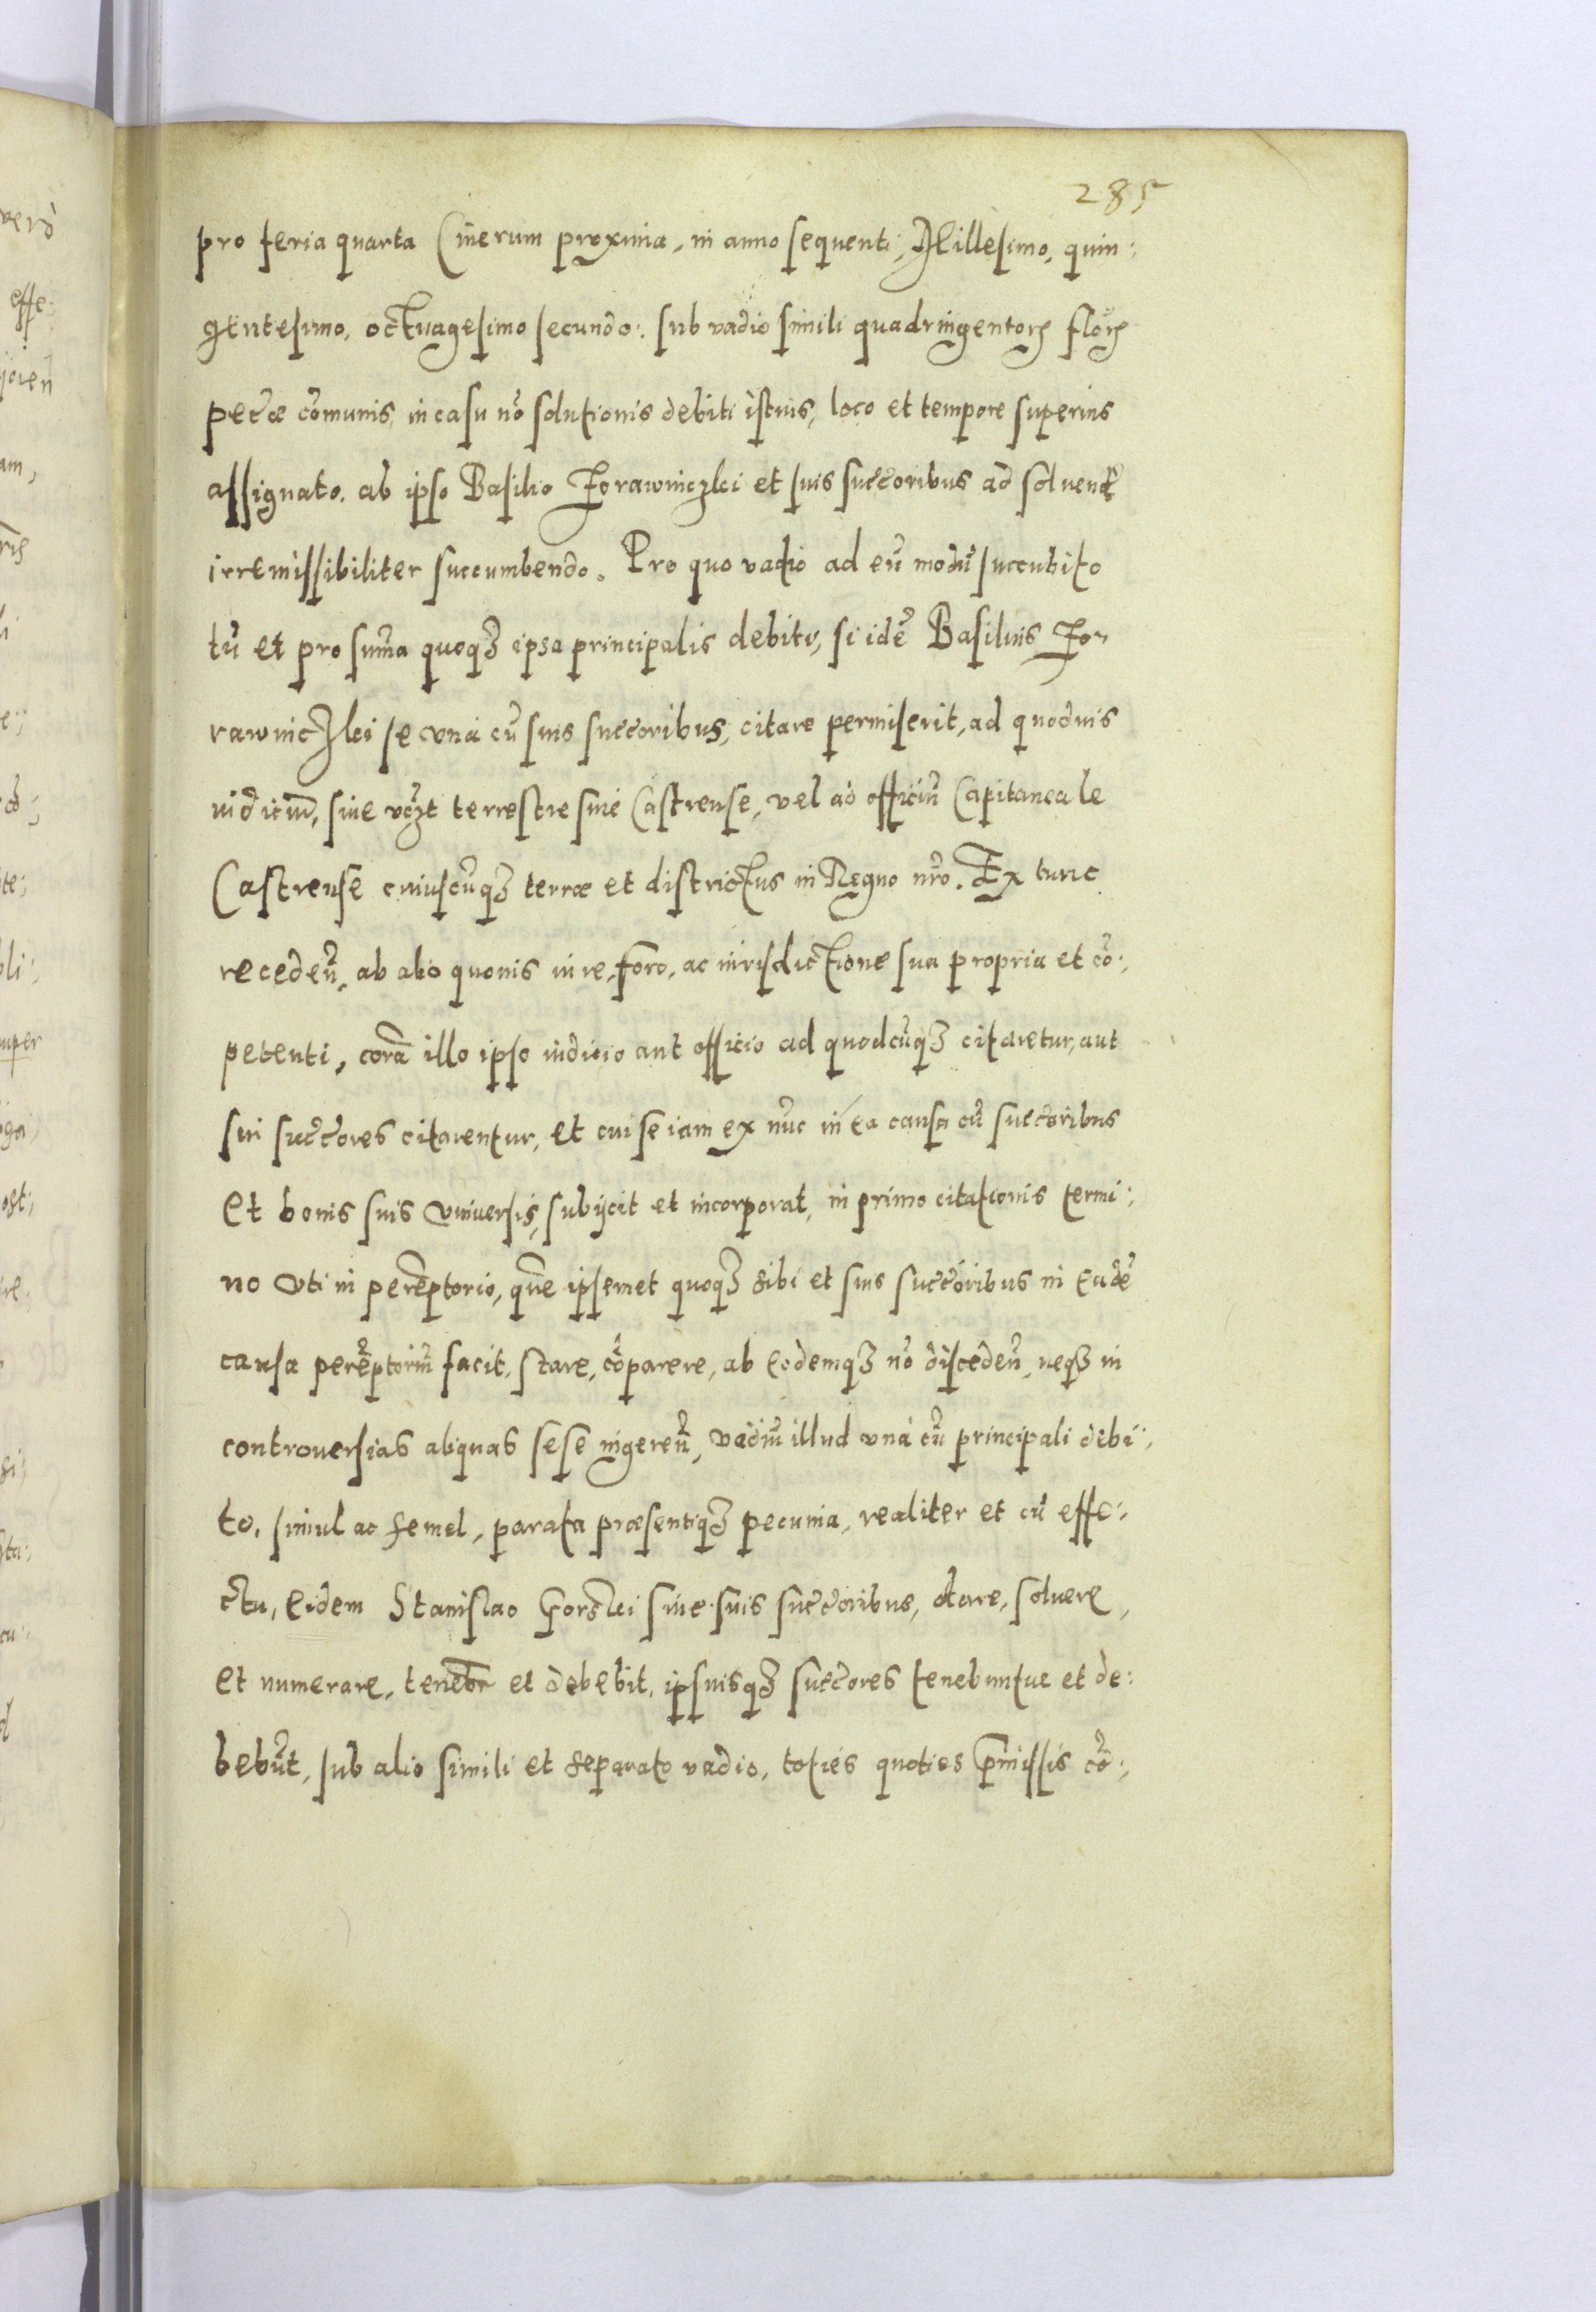 285
pro feria quarta Cinerum proxima, in anno sequenti, Millesimo, quin:
gentesimo, octuagesimo secundo: sub vadio simili quadringentorꝝ florꝝ
pecũæ cõmunis, in casu nõ solutionis debiti istius, loco et tempore superius
assignato, ab ipso Basilio Zorawniczki et suis succoribus ad solvend
irremissibiliter succumbendo. Pro quo vadio ad eũ modũ succubito
tũ et pro sum̃a quoqȝ ipsa principalis debiti, si idẽ Basilius Zo-
rawniczki se vna cũ suis succoribus, citare permiserit, ad quoduis
iudiciũ, siue vczt terrestre siue Castrense, vel ad officiũ Capitaneale
Castrense cuiuscũqȝ terræ et districtus in Regno nrõ. Ex tunc
recedeñ, ab alio quouis iure, foro, ac iurisdictione sua propria et cõ:
petenti, corã illo ipso iudicio aut officio ad quodcũqȝ citaretur, aut
sui succores citarentur, et cui se iam ex nũc in ea causa cũ succoribus
et bonis suis vniuersis, subijcit et incorporat, in primo citationis termi:
no vti in perẽptorio, quẽ ipsemet quoqȝ sibi et suis succoribus in eadẽ
causa perẽptoriũ facit, stare, cõparere, ab eodemqȝ nõ discedeñ, neqȝ in
controuersias aliquas sese ingereñ, vadiũ illud vnà cũ principali debi:
to, simul ac semel, parata præsentiqȝ pecunia, realiter et cũ effe:
ctu, eidem Stanislao Gorski siue suis succoribus, dare, soluere,
et numerare, tenebr et debebit, ipsiusqȝ succores tenebuntur et de:
bebũt, sub alio simili et separato vadio, toties quoties p̃missis cõ: